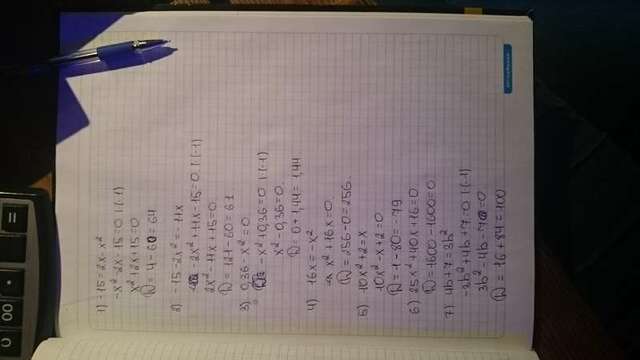 1) -15 = 2x - x²
-x² - 2x - 15 = 0 | (-1)
x² + 2x + 15 = 0
D = 4 - 60 = 64
2) -15 - 2x² = -11x
-2x² + 11x - 15 = 0 | (-1)
2x² - 11x + 15 = 0
D = 121 - 60 = 61
3) 0,36 - x² = 0
-x² + 0,36 = 0 | (-1)
x² - 0,36 = 0.
D = 0 + 1,44 = 1,44
4) 16x = -x²
x² + 16x = 0
D = 256 - 0 = 256.
5) 10x² + 2 = x
10x² - x + 2 = 0
D = 1 - 80 = -79
6) 25x² + 40x + 16 = 0
D = 1600 - 1600 = 0
7) 4b + 7 = 3b²
-3b² + 4b + 7 = 0 | (-1)
3b² - 4b - 7 = 0
D = 16 + 84 = 100